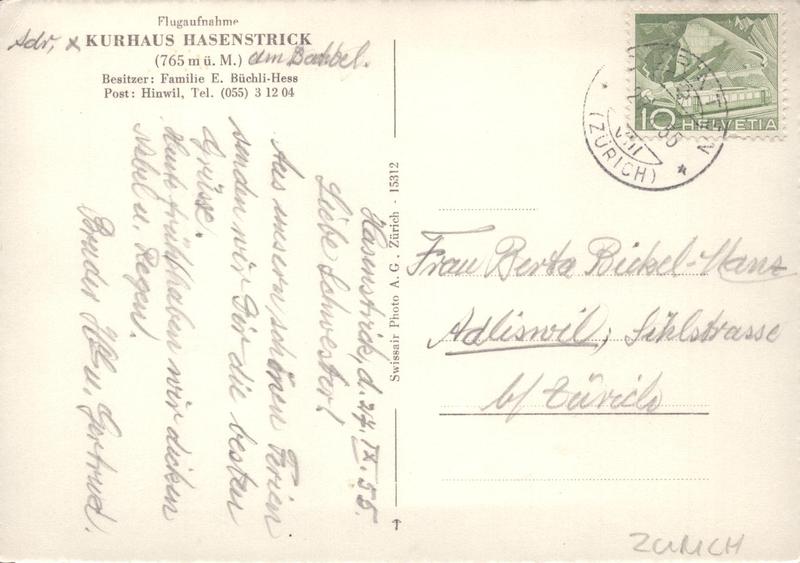 Flugaufnahme
Adr, x KURHAUS HASENSTRICK
(765 m ü. M.) am Bachtel.
Besitzer: Familie E. Büchli-Hess
Post: Hinwil, Tel. (055) 3 12 04
Hasenstrick, d. 27. IX. 55.
Liebe Schwester!
Aus unsern schönen Ferien
senden wir Dir die besten
Grüsse.
Heute früh haben wir dicken
Nebel u. Regen!
Bruder u. Gertrud.
Swissair Photo A.G., Zürich - 15312
10 HELVETIA
(ZÜRICH)
Frau Berta Bickel-Manz
Adliswil, Sihlstrasse
b/ Zürich
ZÜRICH